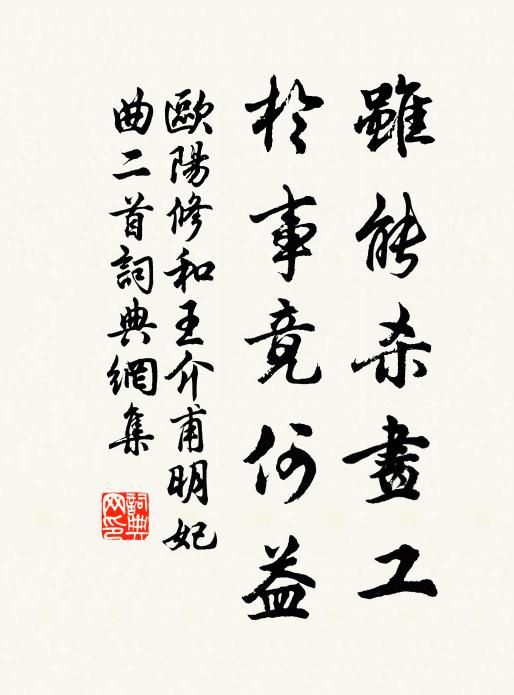 雖能殺畫工
於事竟何益
歐陽修和王介甫明妃
曲二首詞典網集
詞典
网印